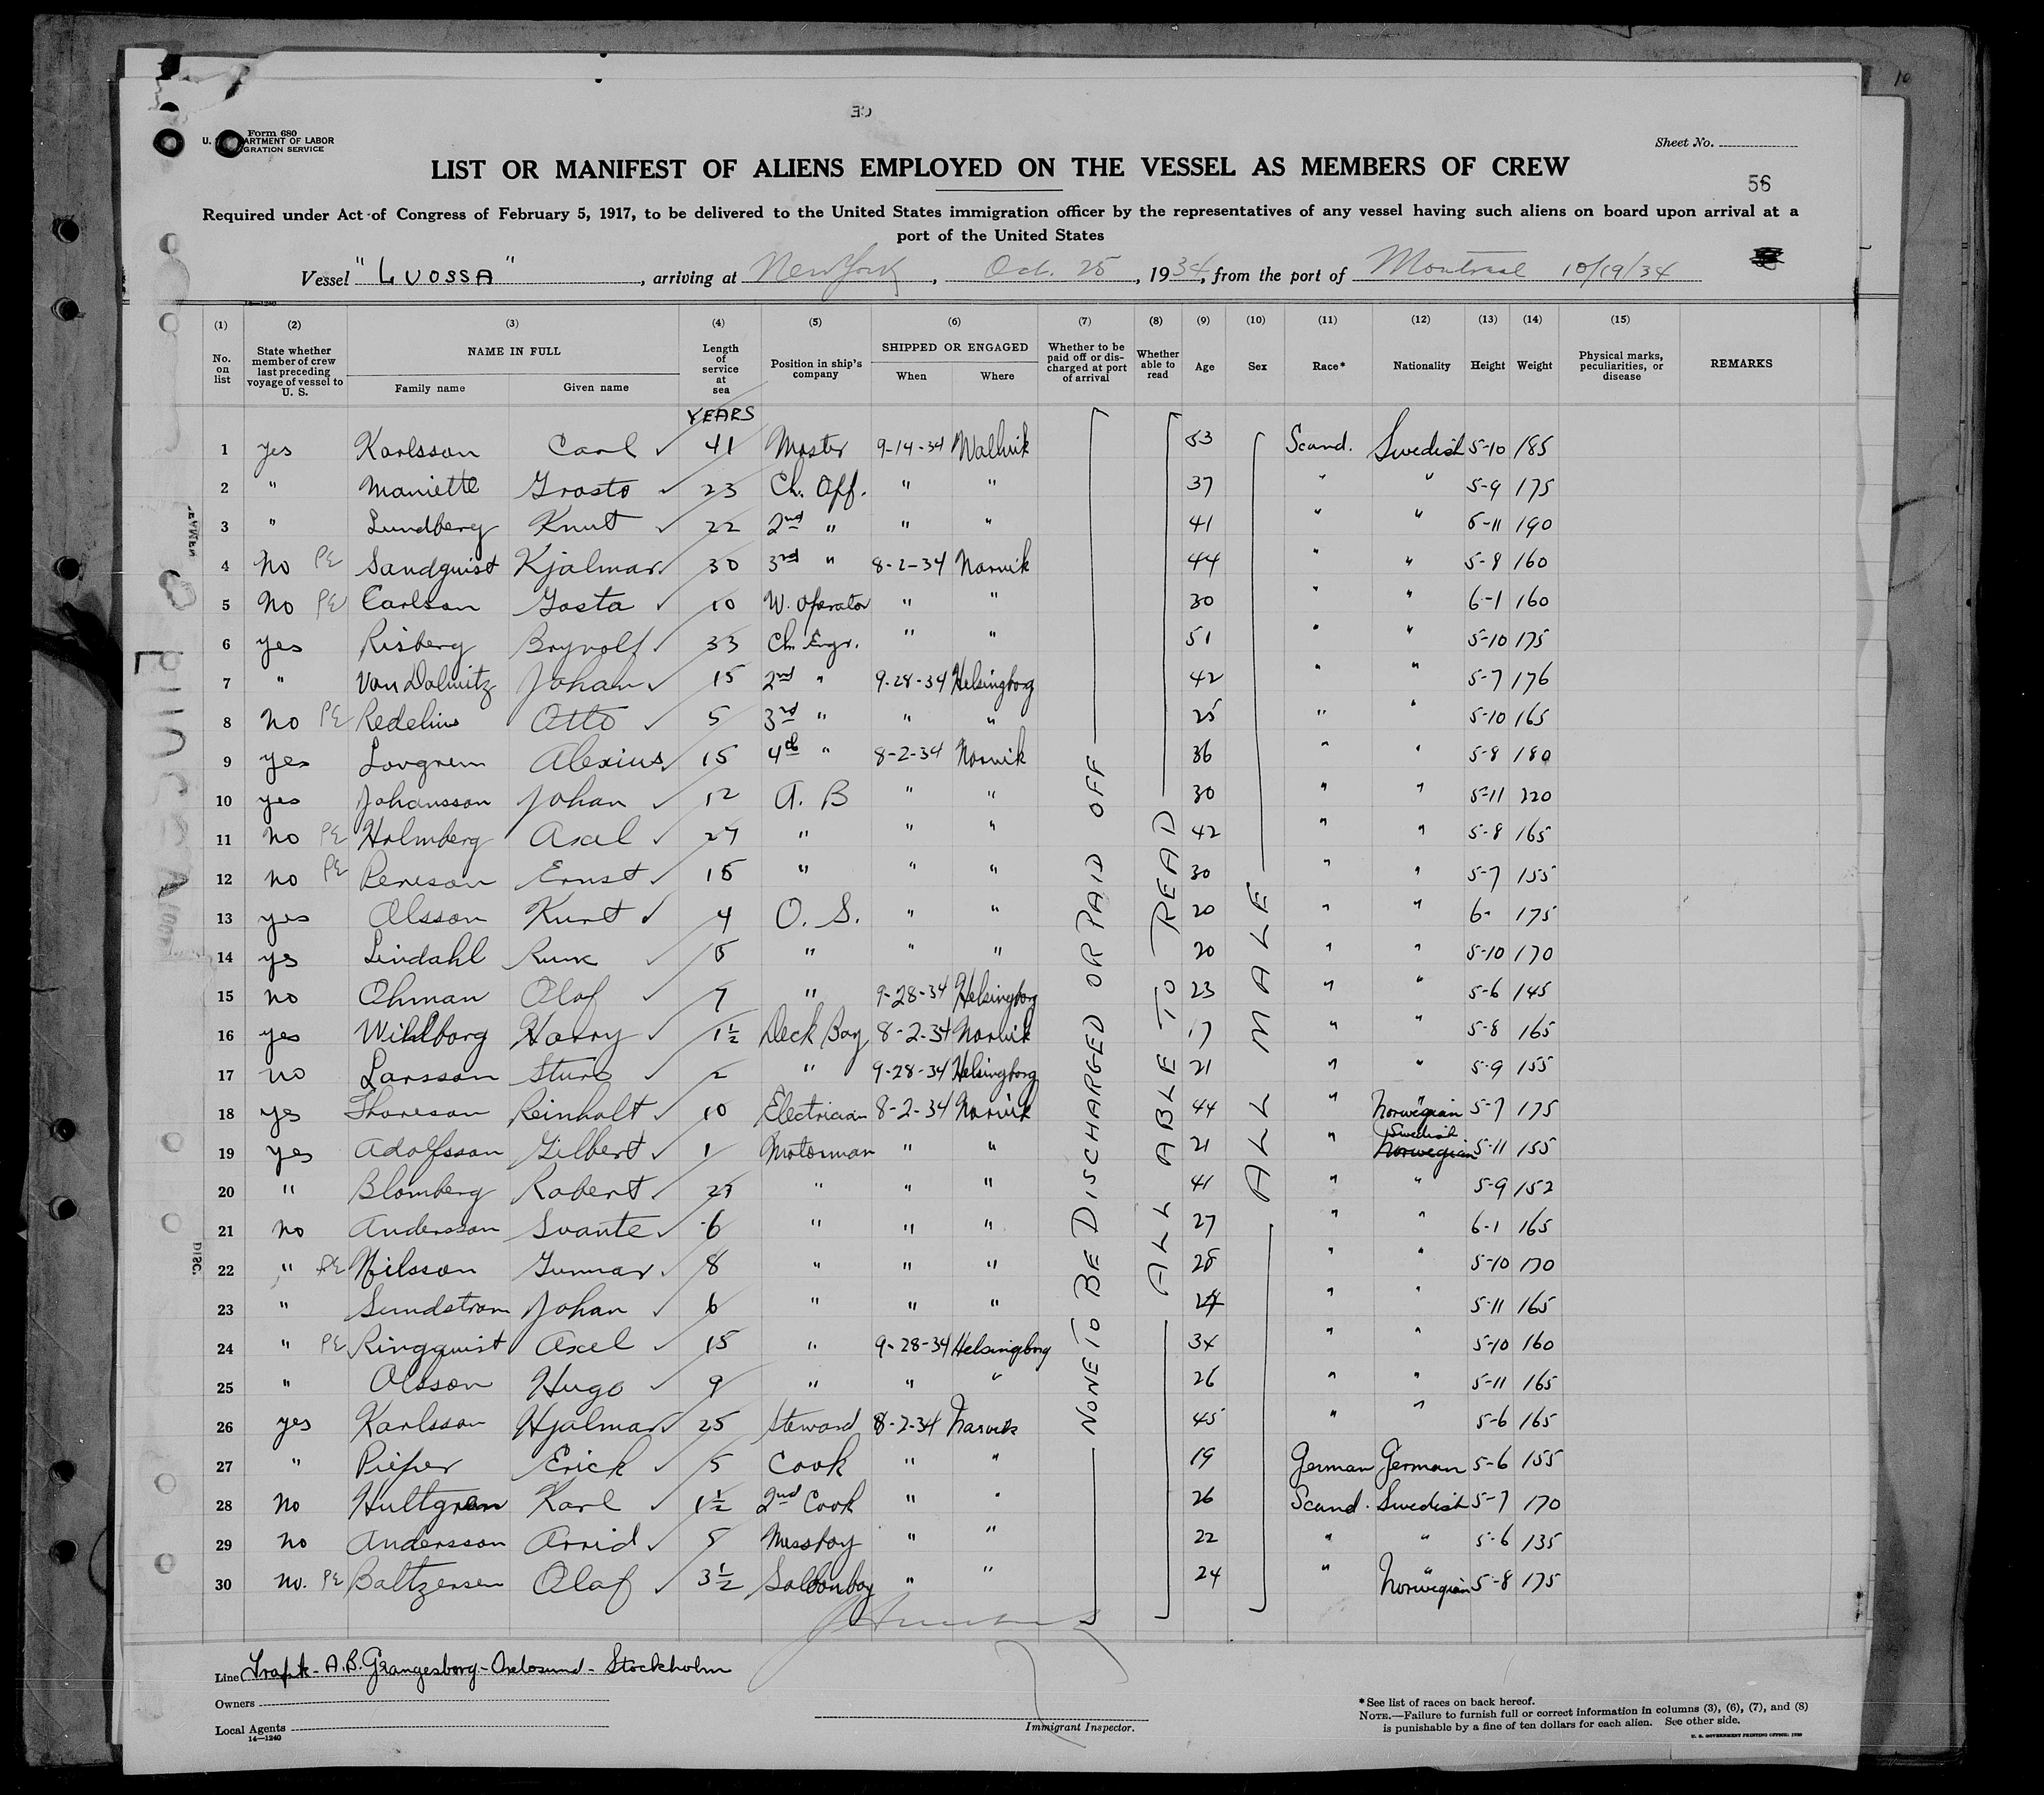 Form 680
U. ARTMENT OF LABOR
GRATION SERVICE
Sheet No.
LIST OR MANIFEST OF ALIENS EMPLOYED ON THE VESSEL AS MEMBERS OF CREW
56
Required under Act of Congress of February 5, 1917, to be delivered to the United States immigration officer by the representatives of any vessel having such aliens on board upon arrival at a
port of the United States
Vessel "LUOSSA", arriving at New York, Oct. 25, 1934, from the port of Montreal 10/19/34
14—1240
(1) (2) (3) (4) (5) (6) (7) (8) (9) (10) (11) (12) (13) (14) (15)
No. on list State whether member of crew last preceding voyage of vessel to U. S. NAME IN FULL Family name Given name Length of service at sea Position in ship's company SHIPPED OR ENGAGED When Where Whether to be paid off or discharged at port of arrival Whether able to read Age Sex Race* Nationality Height Weight Physical marks, peculiarities, or disease REMARKS
YEARS
NONE TO BE DISCHARGED OR PAID OFF
ALL ABLE TO READ
ALL MALE
1 yes Karlsson Carl 41 Master 9-14-34 53 Scand. Swedish 5-10 185
2 " Maniette Grosto 23 Ch. Off. " " 37 " " 5-9 175
3 " Lundberg Knut 22 2nd " " " 41 " " 5-11 190
4 No PE Sandquist Kjalmar 30 3rd " 8-2-34 Narvik 44 " " 5-8 160
5 No PE Carlson Gosta 10 W. Operator " " 30 " " 6-1 160
6 yes Risberg Brynolf 33 Ch. Engr. " " 51 " " 5-10 175
7 " Von Dolwitz Johan 15 2nd " 9-28-34 Helsingborg 42 " " 5-7 176
8 No PE Redelius Otto 5 3rd " " " 25 " " 5-10 165
9 yes Lovgren Alexius 15 4th " 8-2-34 Narvik 36 " " 5-8 180
10 yes Johansson Johan 12 A. B " " 30 " " 5-11 220
11 No PE Holmberg Axel 27 " " " 42 " " 5-8 165
12 no PE Pereson Ernst 15 " " " 30 " " 5-7 155
13 yes Olsson Kurt 4 O. S. " " 20 " " 6- 175
14 yes Lindahl Rune 5 " " " 20 " " 5-10 170
15 no Ohman Olof 7 " 9-28-34 Helsingborg 23 " " 5-6 145
16 yes Wihlborg Harry 1½ Deck Boy 8-2-34 Narvik 17 " " 5-8 165
17 no Larsson Sture 2 " 9-28-34 Helsingborg 21 " " 5-9 155
18 yes Thoreson Reinholt 10 Electrician 8-2-34 Narvik 44 " Norwegian 5-7 175
19 yes Adolfsson Gilbert 1 Motorman " " 21 " Swedish Norwegian 5-11 155
20 " Blomberg Robert 27 " " " 41 " " 5-9 152
21 no Andersson Svante 6 " " " 27 " " 6-1 165
22 " PE Nilsson Gunnar 8 " " " 28 " " 5-10 170
23 " Sundstrom Johan 6 " " " 24 " " 5-11 165
24 " PE Ringquist Axel 15 " 9-28-34 Helsingborg 34 " " 5-10 160
25 " Olsson Hugo 9 " " " 26 " " 5-11 165
26 yes Karlsson Hjalmar 25 Steward 8-2-34 Narvik 45 " " 5-6 165
27 " Pieper Erick 5 Cook " " 19 German German 5-6 155
28 No Hultgren Karl 1½ 2nd Cook " " 26 Scand. Swedish 5-7 170
29 no Andersson Arvid 5 Messboy " " 22 " " 5-6 135
30 no. PE Baltzersen Olaf 3½ Saloonboy " " 24 " Norwegian 5-8 175
Line Trafik- A.B. Grangesborg-Oxelosund- Stockholm
Owners
Local Agents
14—1240
Immigrant Inspector.
*See list of races on back hereof.
NOTE.—Failure to furnish full or correct information in columns (3), (6), (7), and (8)
is punishable by a fine of ten dollars for each alien. See other side.